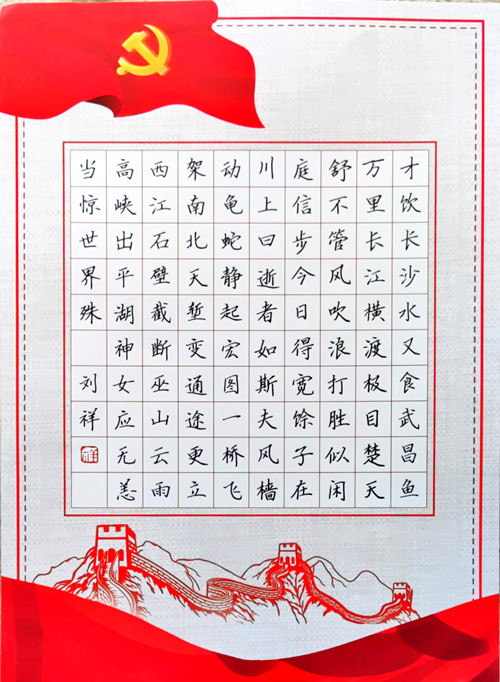 才饮长沙水又食武昌鱼
万里长江横渡极目楚天
舒不管风吹浪打胜似闲
庭信步今日得宽馀子在
川上曰逝者如斯夫风樯
动龟蛇静起宏图一桥飞
架南北天堑变通途更立
西江石壁截断巫山云雨
高峡出平湖神女应无恙
当惊世界殊 刘祥
祥